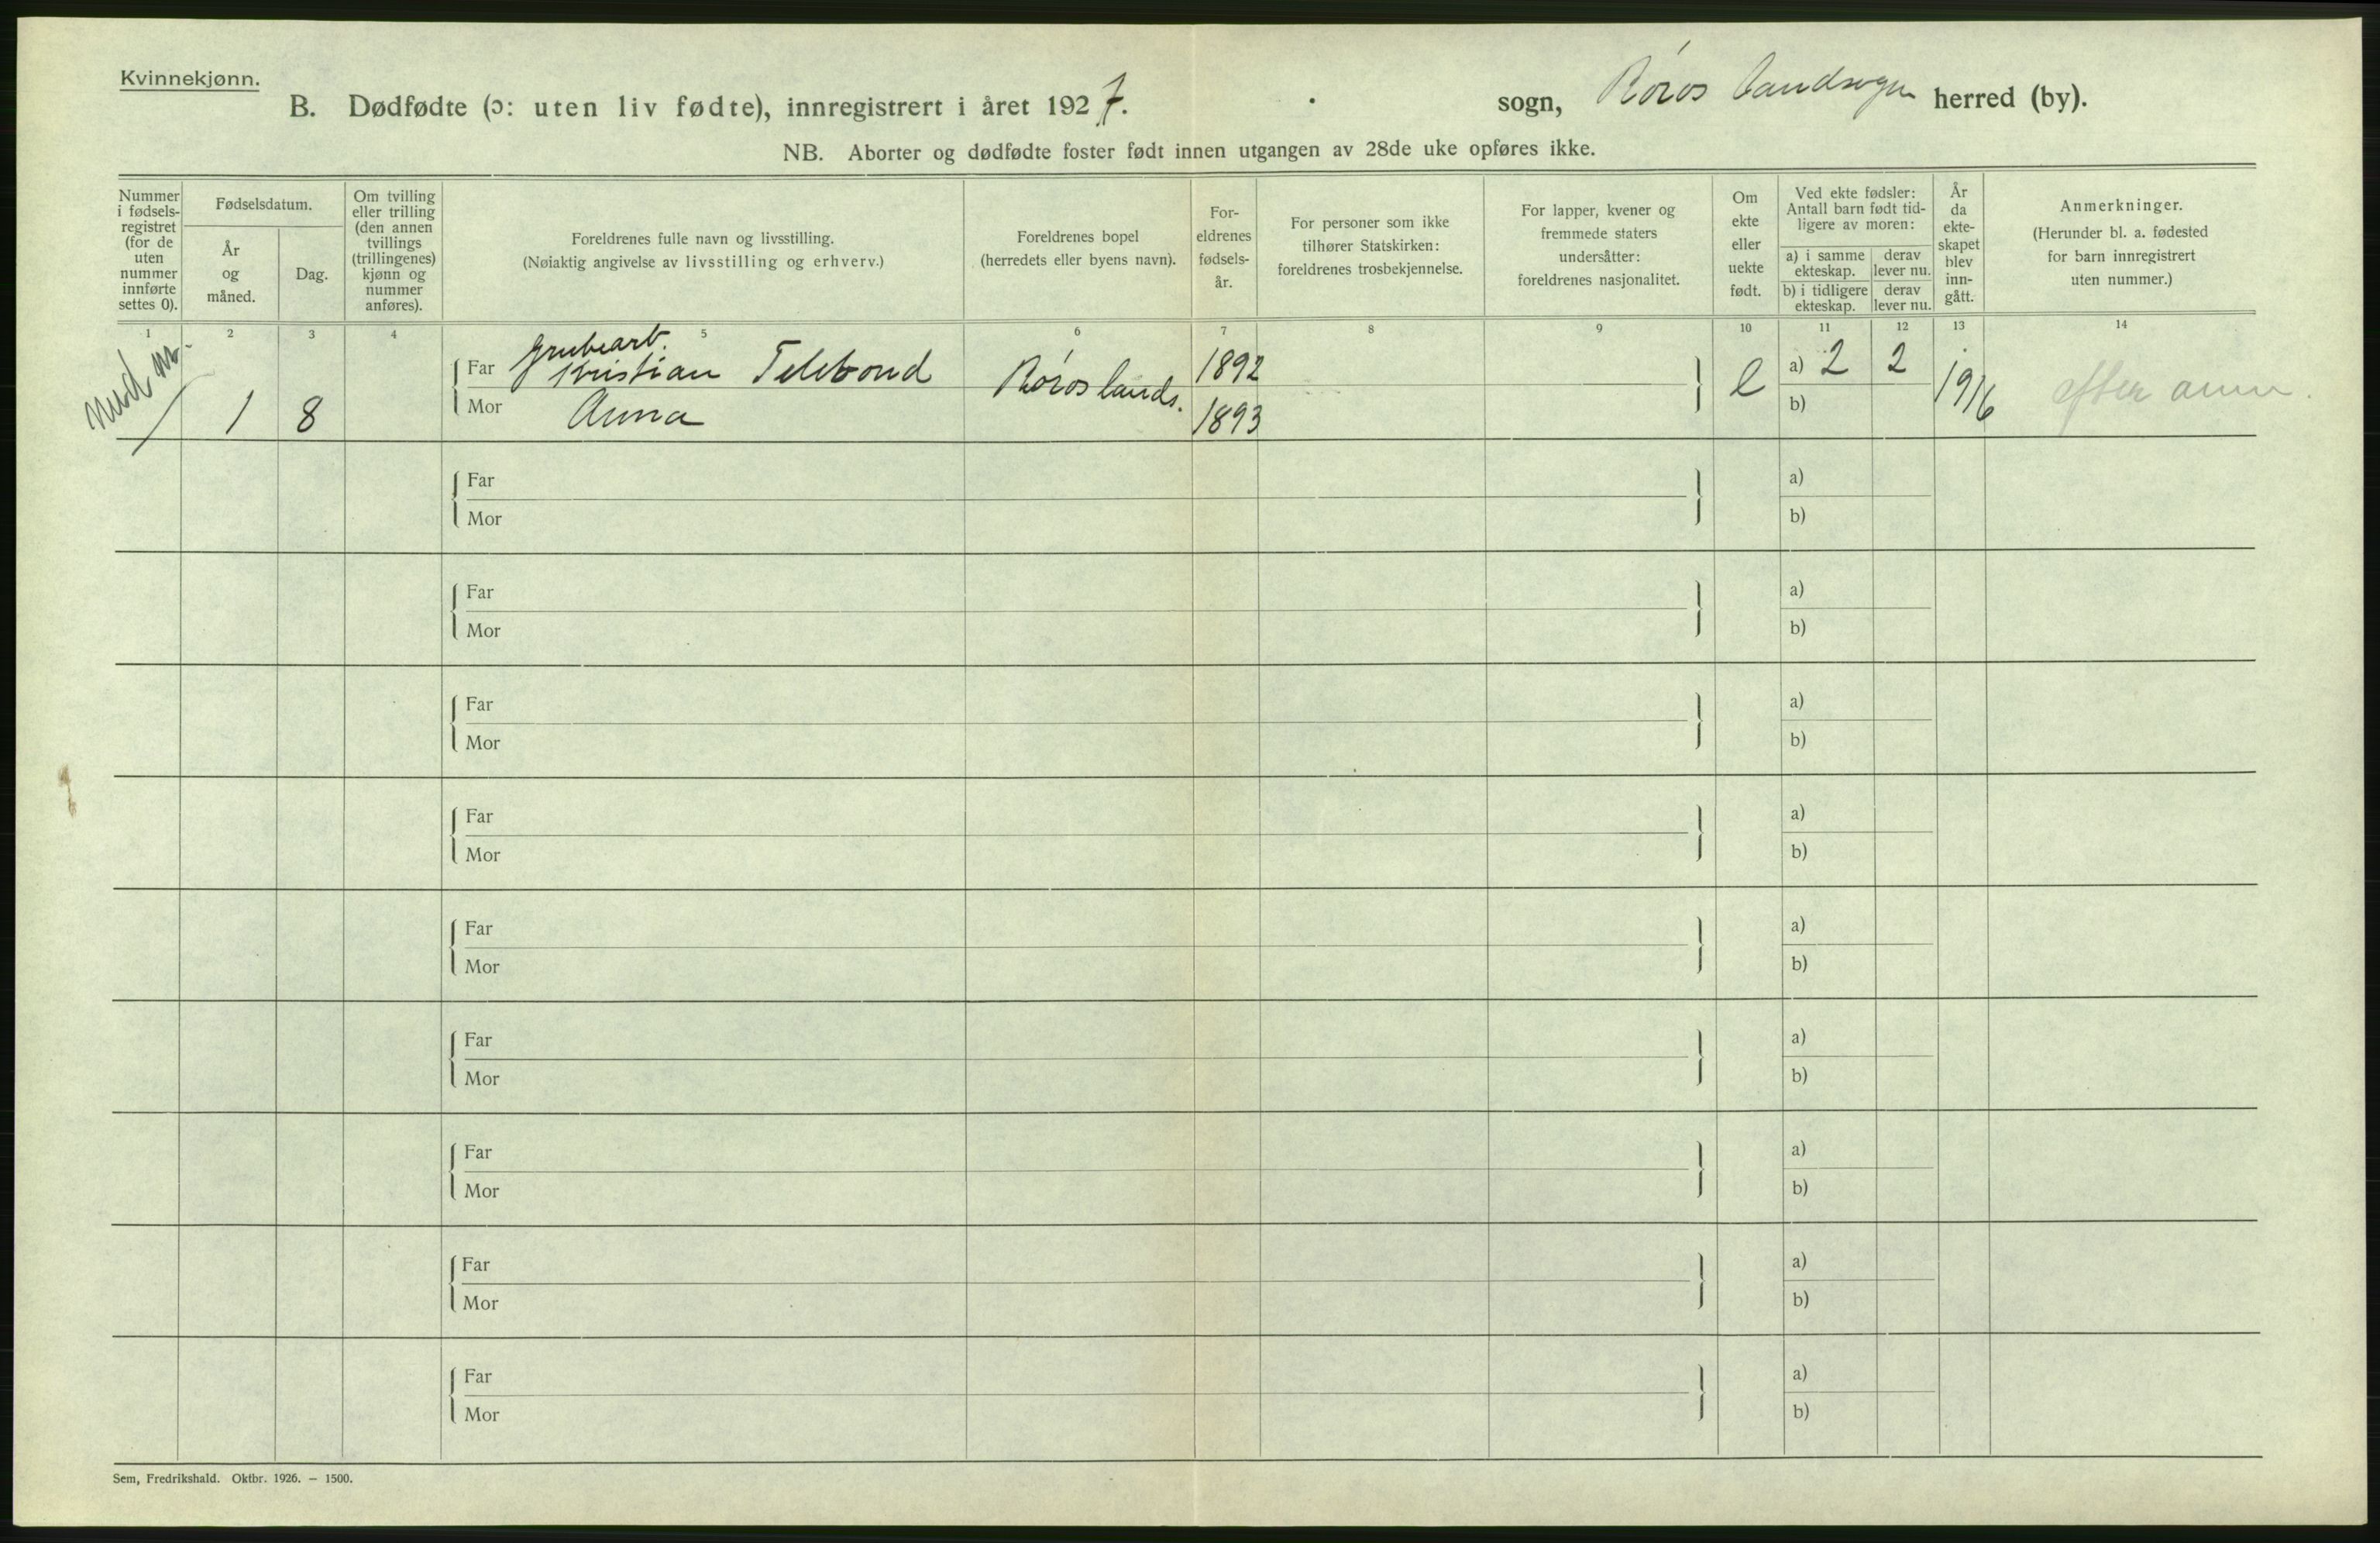 Kvinnekjønn.
B. Dødfødte (ɔ: uten liv fødte), innregistrert i året 1927. sogn, Røros landsogn herred (by).
NB. Aborter og dødfødte foster født innen utgangen av 28de uke opføres ikke.
Nummer i fødsels- registret (for de uten nummer innførte settes 0).
Fødselsdatum.
År og måned.
Dag.
Om tvilling eller trilling (den annen tvillings (trillingenes) kjønn og nummer anføres).
Foreldrenes fulle navn og livsstilling.
(Nøiaktig angivelse av livsstilling og erhverv.)
Foreldrenes bopel
(herredets eller byens navn).
For- eldrenes fødsels- år.
For personer som ikke tilhører Statskirken: foreldrenes trosbekjennelse.
For lapper, kvener og fremmede staters undersåtter: foreldrenes nasjonalitet.
Om ekte eller uekte født.
Ved ekte fødsler: Antall barn født tid- ligere av moren:
a) i samme ekteskap.
derav lever nu.
b) i tidligere ekteskap.
derav lever nu.
År da ekte- skapet blev inn- gått.
Anmerkninger.
(Herunder bl. a. fødested for barn innregistrert uten nummer.)
1 2 3 4 5 6 7 8 9 10 11 12 13 14
Grubearb.
Far Kristian 1892 a) 2 2
1 8 Røros lands. e 1916
Mor Anna 1893 b)
Far a)
Mor b)
Far a)
Mor b)
Far a)
Mor b)
Far a)
Mor b)
Far a)
Mor b)
Far a)
Mor b)
Far a)
Mor b)
Far a)
Mor b)
Far a)
Mor b)
Sem, Fredrikshald. Oktbr. 1926. — 1500.